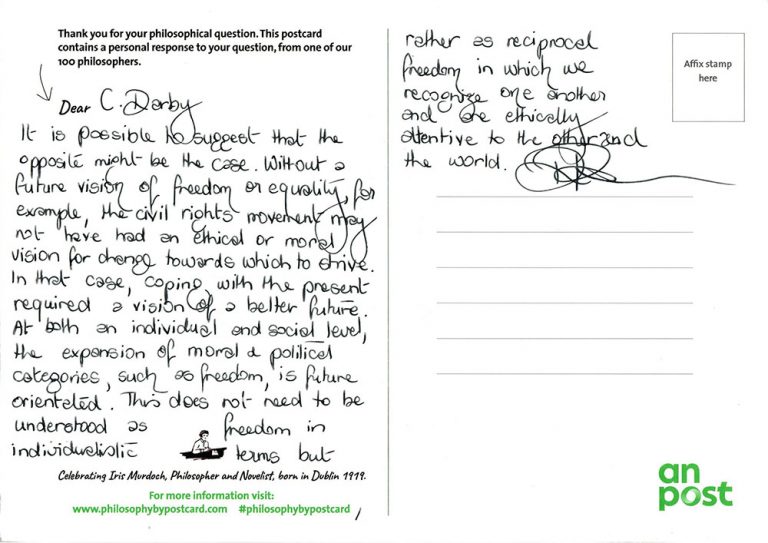 Thank you for your philosophical question. This postcard
contains a personal response to your question, from one of our
100 philosophers.
Dear C. Darby
It is possible to suggest that the
opposite might be the case. Without a
future vision of freedom or equality, for
example, the civil rights movement may
not have had an ethical or moral
vision for change towards which to strive.
In that case, coping with the present
required a vision of a better future.
At both an individual and social level,
the expansion of moral & political
categories, such as freedom, is future
orientated. This does not need to be
understood as freedom in
individualistic terms but
Celebrating Iris Murdoch, Philosopher and Novelist, born in Dublin 1919.
For more information visit:
www.philosophybypostcard.com #philosophybypostcard
rather as reciprocal
freedom in which we
recognize one another
and are ethically
attentive to the other and
the world.
Affix stamp
here
an
post